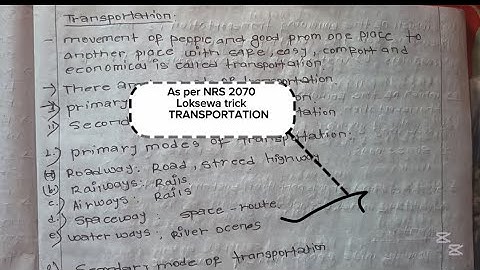 Transportation:
- movement of people and good from one place to
another place with safe, easy, comfort and
economical is called transportation.
There are of transportation
i) primary tion
ii) Second tation
As per NRS 2070
Loksewa trick
TRANSPORTATION
1. primary modes of transportation:-
a) Roadway: Road, streed highway
(b) Railways: Rails
c) Airways: Rails
d) Spaceway: space-route
e) water ways: River ocenes
mode of transportation